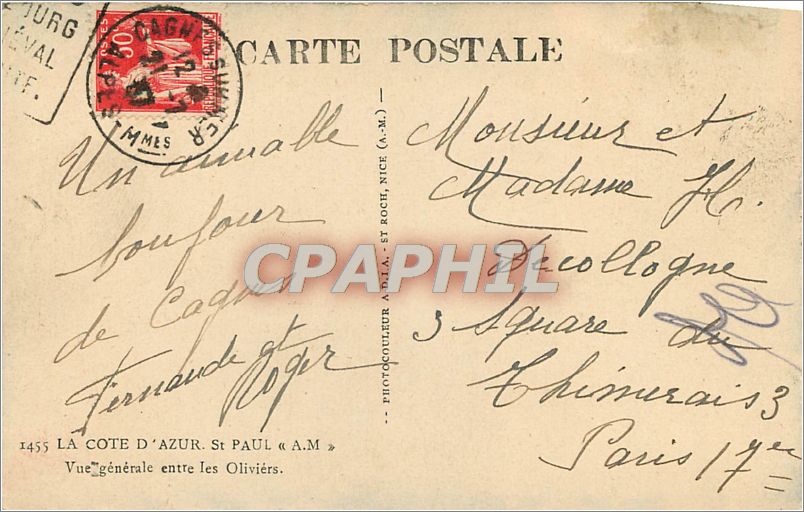 BOURG
POSTES
50c
REPUBLIQUE FRANÇAISE
CAGNES-SUR-MER
12
37
ALPES MMES
CARTE POSTALE
Un aimable
bonjour
de Cagnes
Fernande et
Roger
1455 LA COTE D'AZUR. St PAUL « A.M »
Vue générale entre les Oliviérs.
PHOTOCOULEUR A D.I.A. - ST ROCH, NICE (A.-M.)
CPAPHIL
Monsieur et
Madame H.
Decollogne
3 Square du
Thimerais 3
Paris 17e